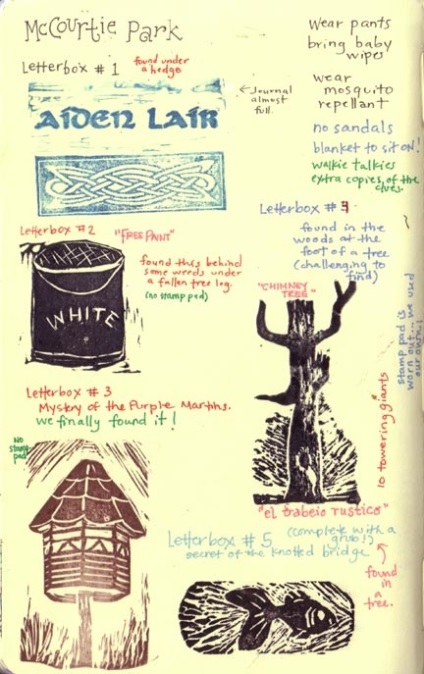 McCourtie Park
Letterbox # 1
found under
a hedge
AIDEN LAIR
← Journal
almost
full.
Wear pants
bring baby
wipes
wear
mosquito
repellant
no sandals
blanket to sit ON!
walkie talkies
extra copies of the
clues.
Letterbox #2
"FREE PAINT"
found this behind
some weeds under
a fallen tree log.
(no stamp pad)
WHITE
Letterbox # 3
Mystery of the Purple Martins.
we finally found it!
No
stamp
pad
Letterbox #
found in the
woods at the
foot of a tree
(challenging to
find)
"CHIMNEY
TREE"
stamp pad is
worn out... we used
our own!
10 towering giants
"el trabeio rustico"
Letterbox # 5
(complete with a
grub!)
secret of the knotted bridge
found
in
a
tree.